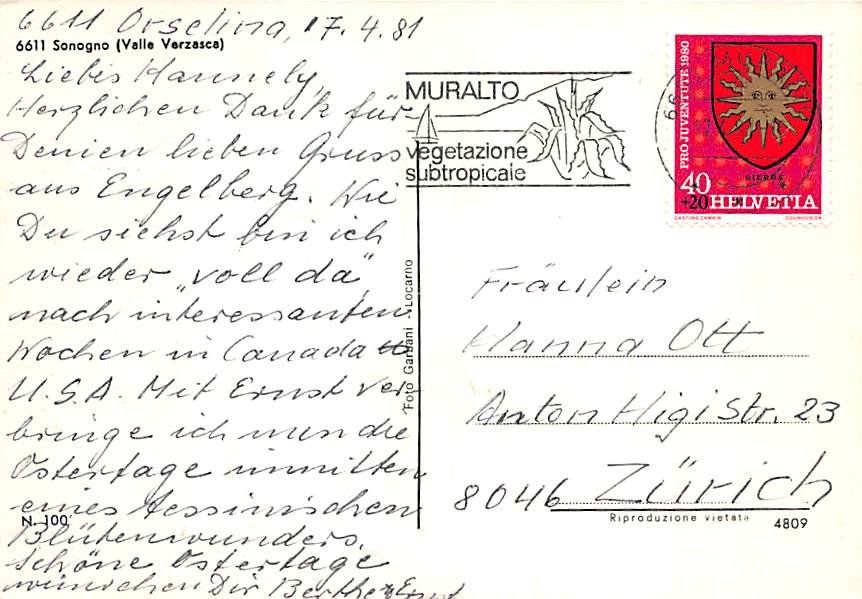 6611 Orselina, 17.4.81
6611 Sonogno (Valle Verzasca)
Liebis Hannely,
Herzlichen Dank für
Deinen lieben Gruss
aus Engelberg. Wie
Du siehst bin ich
wieder „voll da”,
nach interessanten
Wochen in Canada
U.S.A. Mit Ernst ver-
bringe ich nun die
Ostertage inmitten
eines tessinischen
N. 100
Blütenwunders.
Schöne Ostertage
wünschen Dir Berthe & Ernst
MURALTO
vegetazione
subtropicale
PRO JUVENTUTE 1980
SIERRE
40
+20 HELVETIA
COURVOISIER
Foto Garbani - Locarno
Fräulein
Hanna Ott
Anton Higi Str. 23
8046 Zürich
Riproduzione vietata 4809